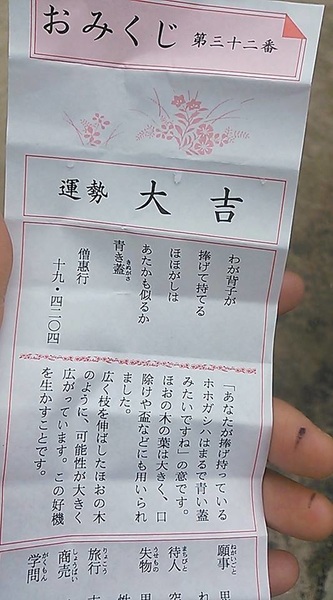 おみくじ 第三十二番
運勢 大吉
わが背子が
捧げて持てる
ほほがしは
あたかも似るか
青き蓋
きぬがさ
僧惠行
十九・四二〇四
「あなたが捧げ持っている
ホホガシハはまるで青い蓋
みたいですね」の意です。
ほおの木の葉は大きく、口
除けや盃などにも用いられ
ました。
広く枝を伸ばしたほおの木
のように、可能性が大きく
広がっています。この好機
を生かすことです。
願事 思
ねがいごと
待人
まちびと
失物
うせもの
旅行
りょこう
商売
しょうばい
学問
がくもん